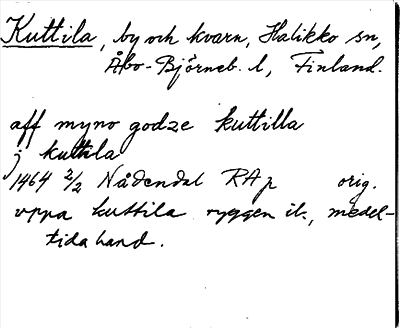 Kuttila, by och kvarn, Halikko sn,
Åbo-Björneb. l, Finland.
aff myno godze kuttilla
j kuttila
1464 2/2 Nådendal RAp orig.
uppa kuttila ryggen ib., medel-
tida hand.